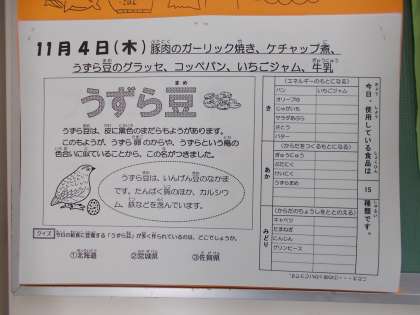 11月4日(木)豚肉のガーリック焼き、ケチャップ煮、
うずら豆のグラッセ、コッペパン、いちごジャム、牛乳
うずら豆
うずら豆は、皮に黒色のまだらもようがあります。
このもようが、うずら卵のからや、うずらという鳥の
色合いに似ていることから、この名がつきました。
うずら豆は、いんげん豆のなかま
です。たんぱく質のほか、カルシウ
ム、鉄などを含んでいます。
クイズ
今日の給食に登場する「うずら豆」が多く作られているのは、どこでしょうか。
①北海道 ②宮城県 ③佐賀県
き
(エネルギーのもとになる)
パン いちごジャム
オリーブ油
じゃがいも
サラダあぶら
さとう
バター
あか
(からだをつくるもとになる)
ぎゅうにゅう
ぶたにく
けいにく
うずらまめ
みどり
(からだのちょうしをととのえる)
キャベツ
たまねぎ
にんじん
グリンピース
今日、使用している食品は
15
種類です。